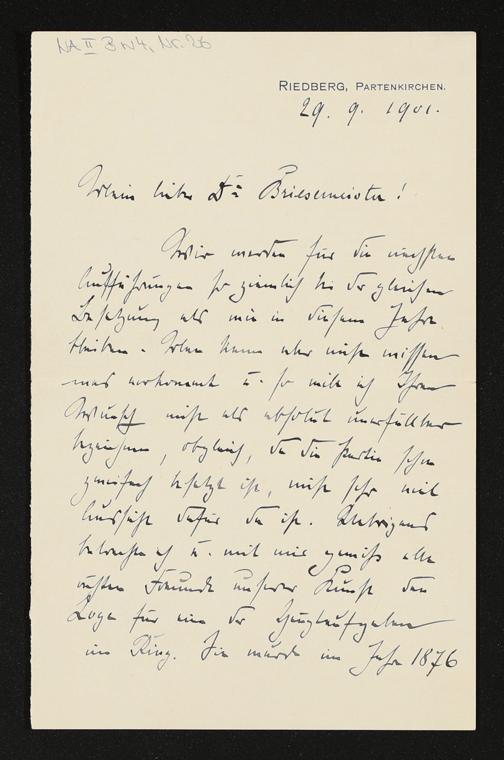 NA II B N4, Nr. 26
RIEDBERG, PARTENKIRCHEN.
29. 9. 1901.
Mein lieber Dr Briesemeister!
Wir werden für die nächsten
Aufführungen so ziemlich bei der gleichen
Besetzung als wie in diesem Jahre
bleiben. Man kann aber nicht wissen
was vorkommt u. so will ich Ihren
Wunsch nicht als absolut unerfüllbar
bezeichnen, obgleich, da die Partie schon
zweifach besetzt ist, nicht sehr viel
Aussicht dafür da ist. Uebrigens
betrachte ich u. mit mir gewiss alle
ächten Freunde unserer Kunst den
Loge für eine der Hauptaufgaben
im Ring. Sie wurde im Jahre 1876